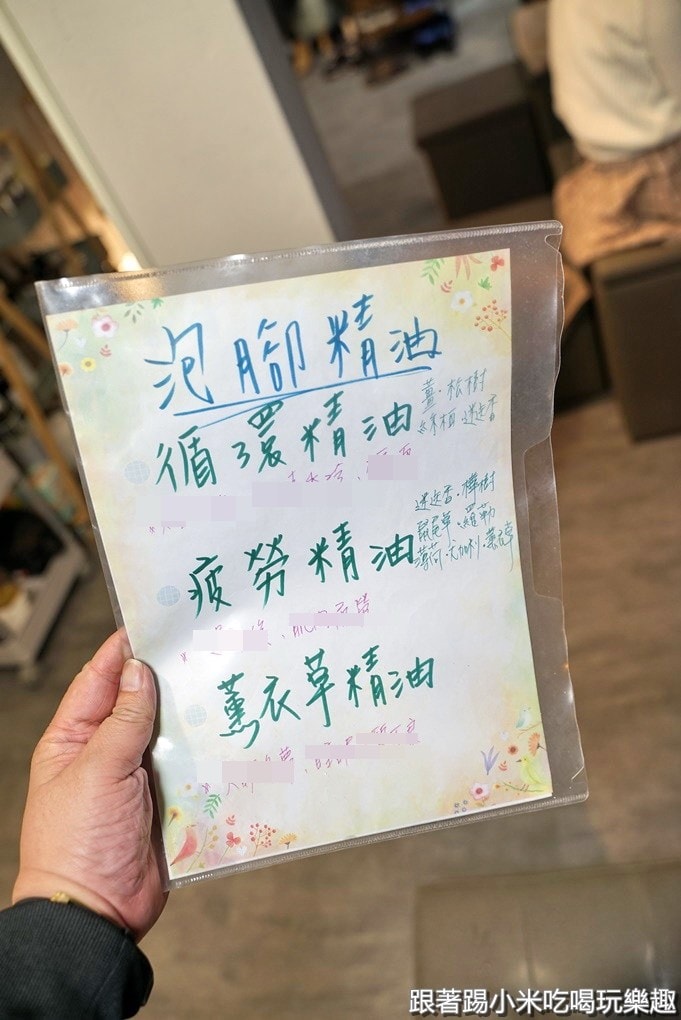 泡腳精油
循環精油
薑．松樹
絲柏．迷迭香
疲勞精油
迷迭香．樺樹
鼠尾草．羅勒
薄荷．尤加利．薰衣草
薰衣草精油
跟著踢小米吃喝玩樂趣